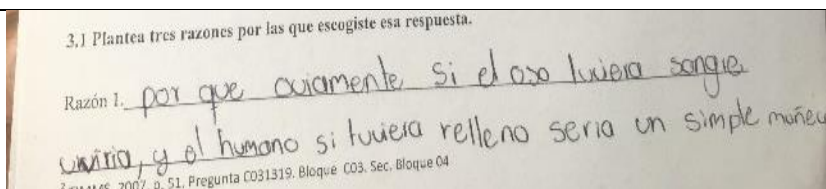 3.1 Plantea tres razones por las que escogiste esa respuesta.
Razón 1. por que oviamente si el oso tuviera sangre
viviria, y el humano si tuviera relleno seria un simple muñeco
2007, p. 51, Pregunta C031319. Bloque C03. Sec. Bloque 04